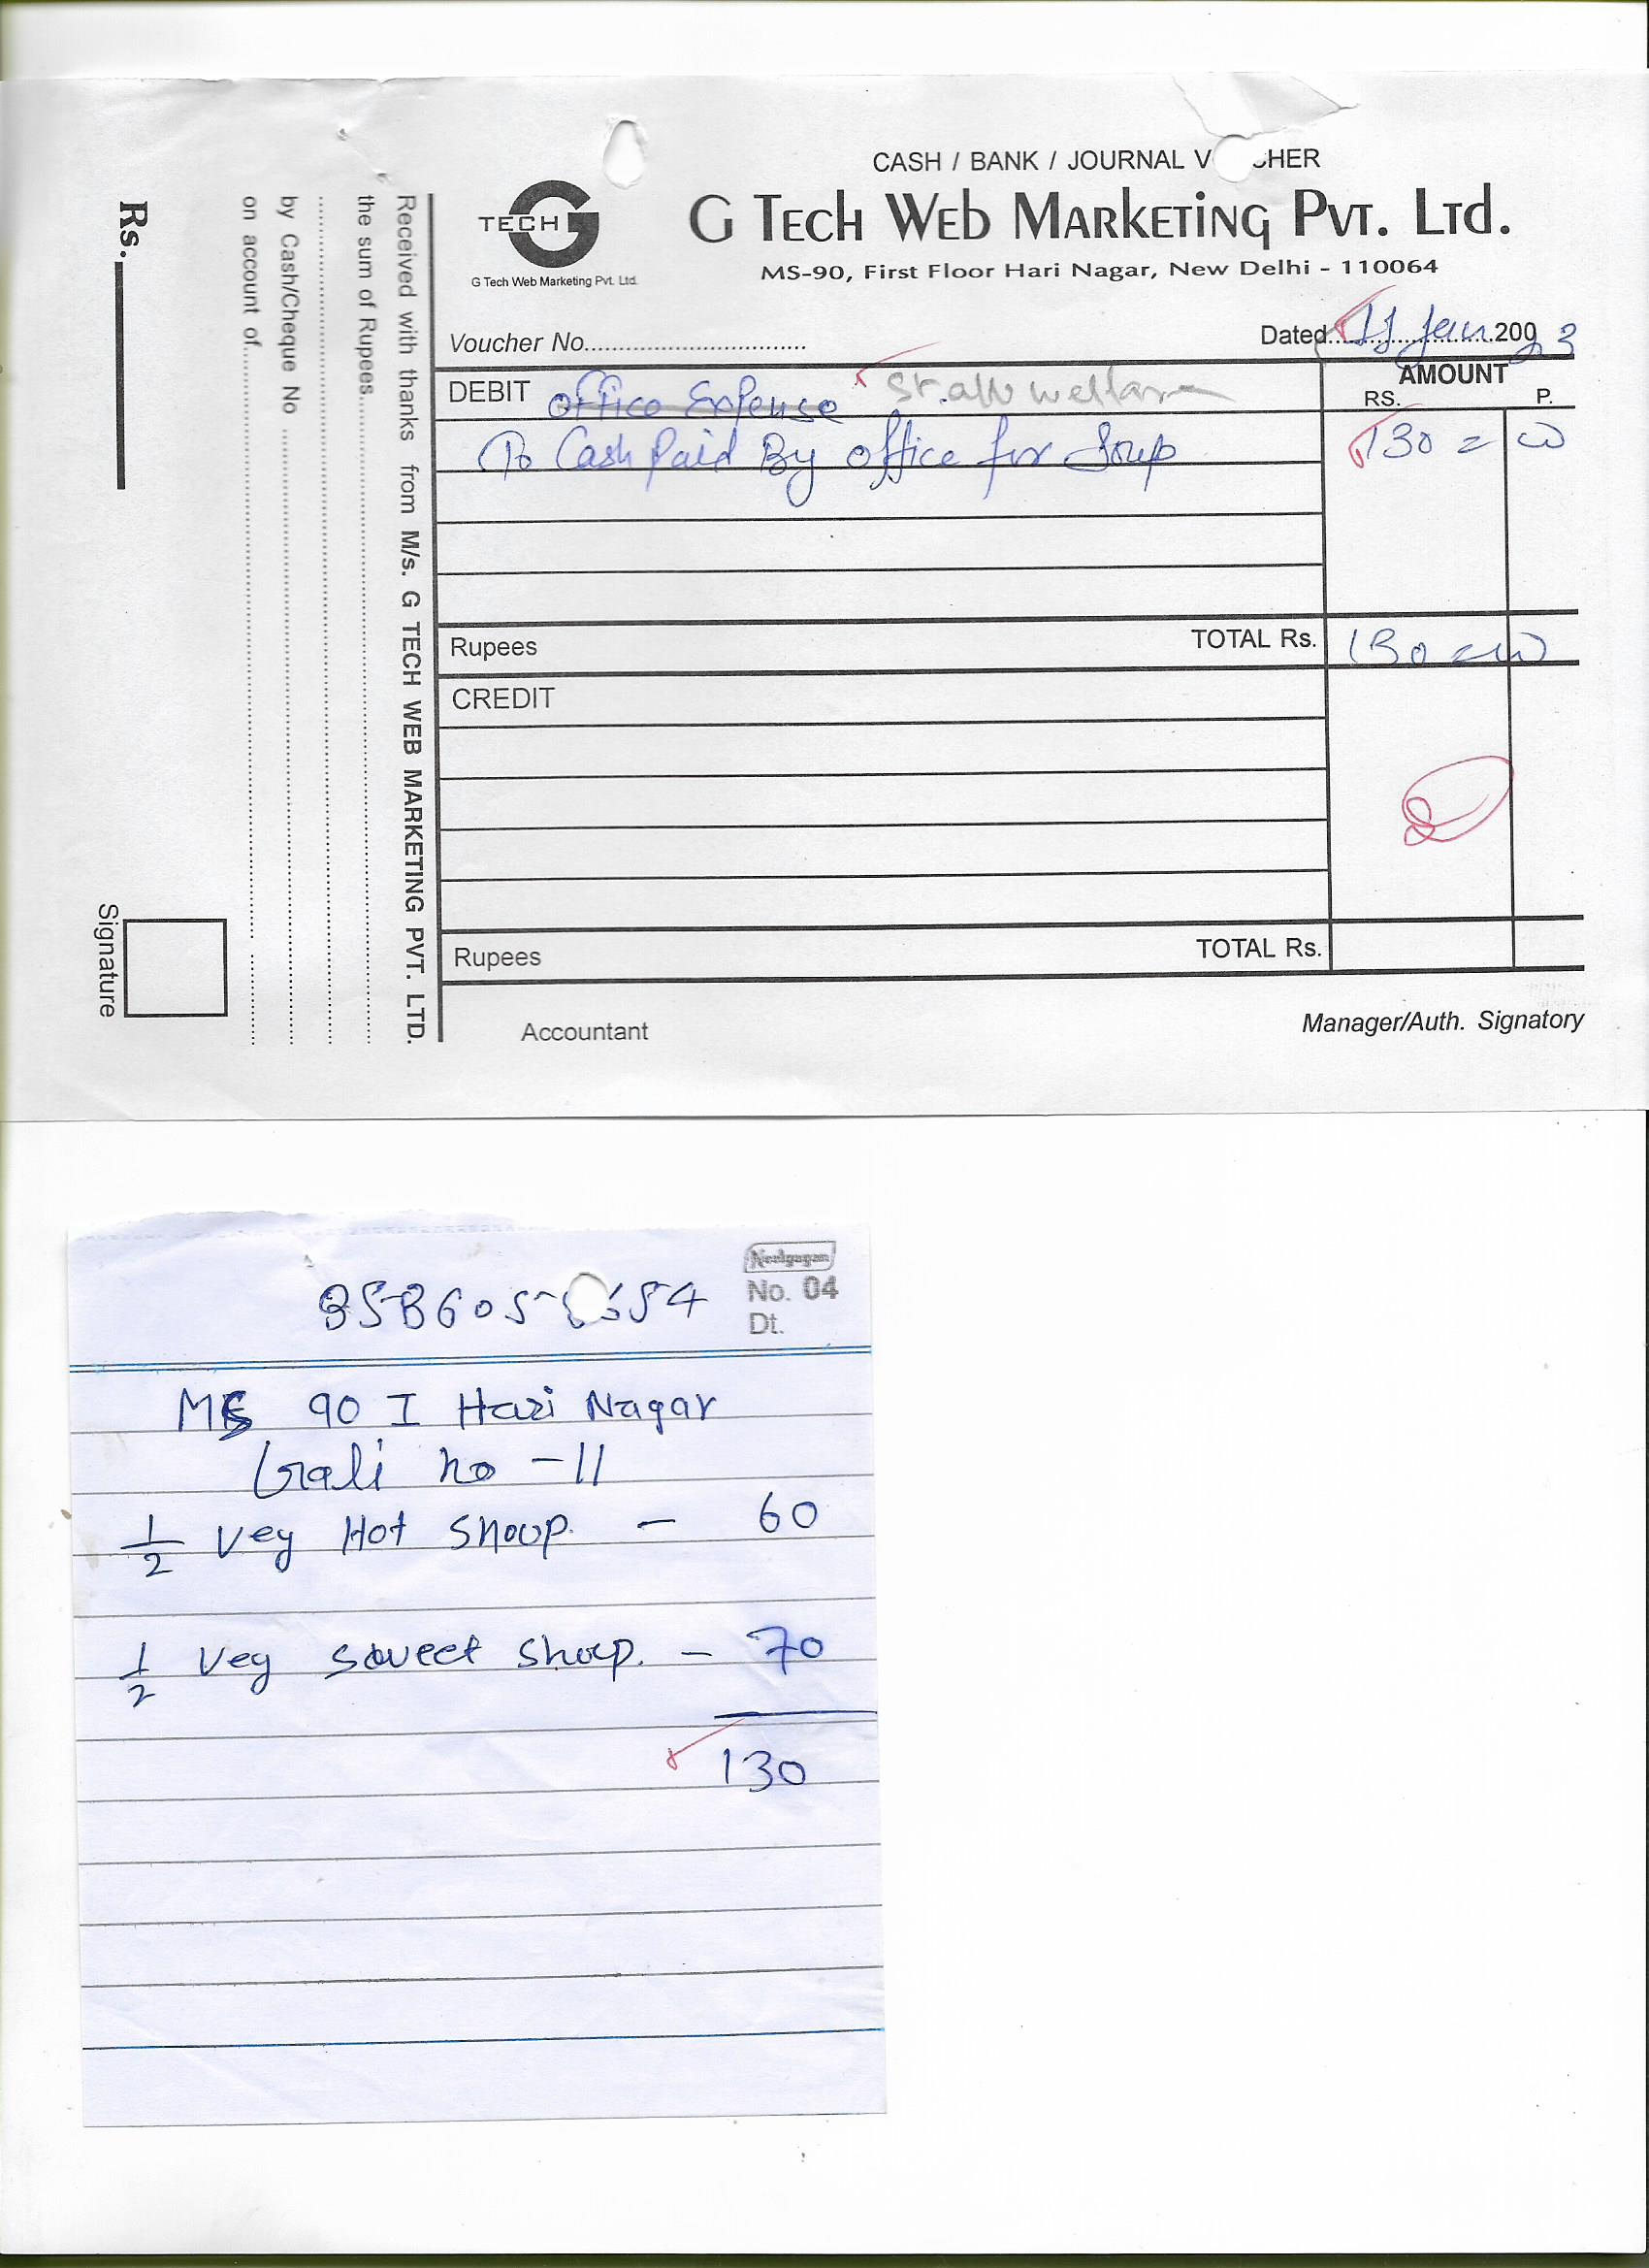 CASH / BANK / JOURNAL V CHER
TECH G
G Tech Web Marketing Pvt. Ltd.
G Tech Web Marketing Pvt. Ltd.
MS-90, First Floor Hari Nagar, New Delhi - 110064
Voucher No.
Dated 11 Jan 2023
AMOUNT
RS. P.
DEBIT Office Expense Staff welfare
To Cash Paid By office for Soup 130 = 00
Rupees TOTAL Rs. 130 = 00
CREDIT
Rupees TOTAL Rs.
Accountant Manager/Auth. Signatory
Received with thanks from M/s. G TECH WEB MARKETING PVT. LTD.
the sum of Rupees
by Cash/Cheque No
on account of
Rs.
Signature
Neelgagan
No. 04
Dt.
MS 90 I Hari Nagar
Gali no -11
1/2 Veg Hot Shoup. - 60
1/2 Veg sweet shoup. - 70
130